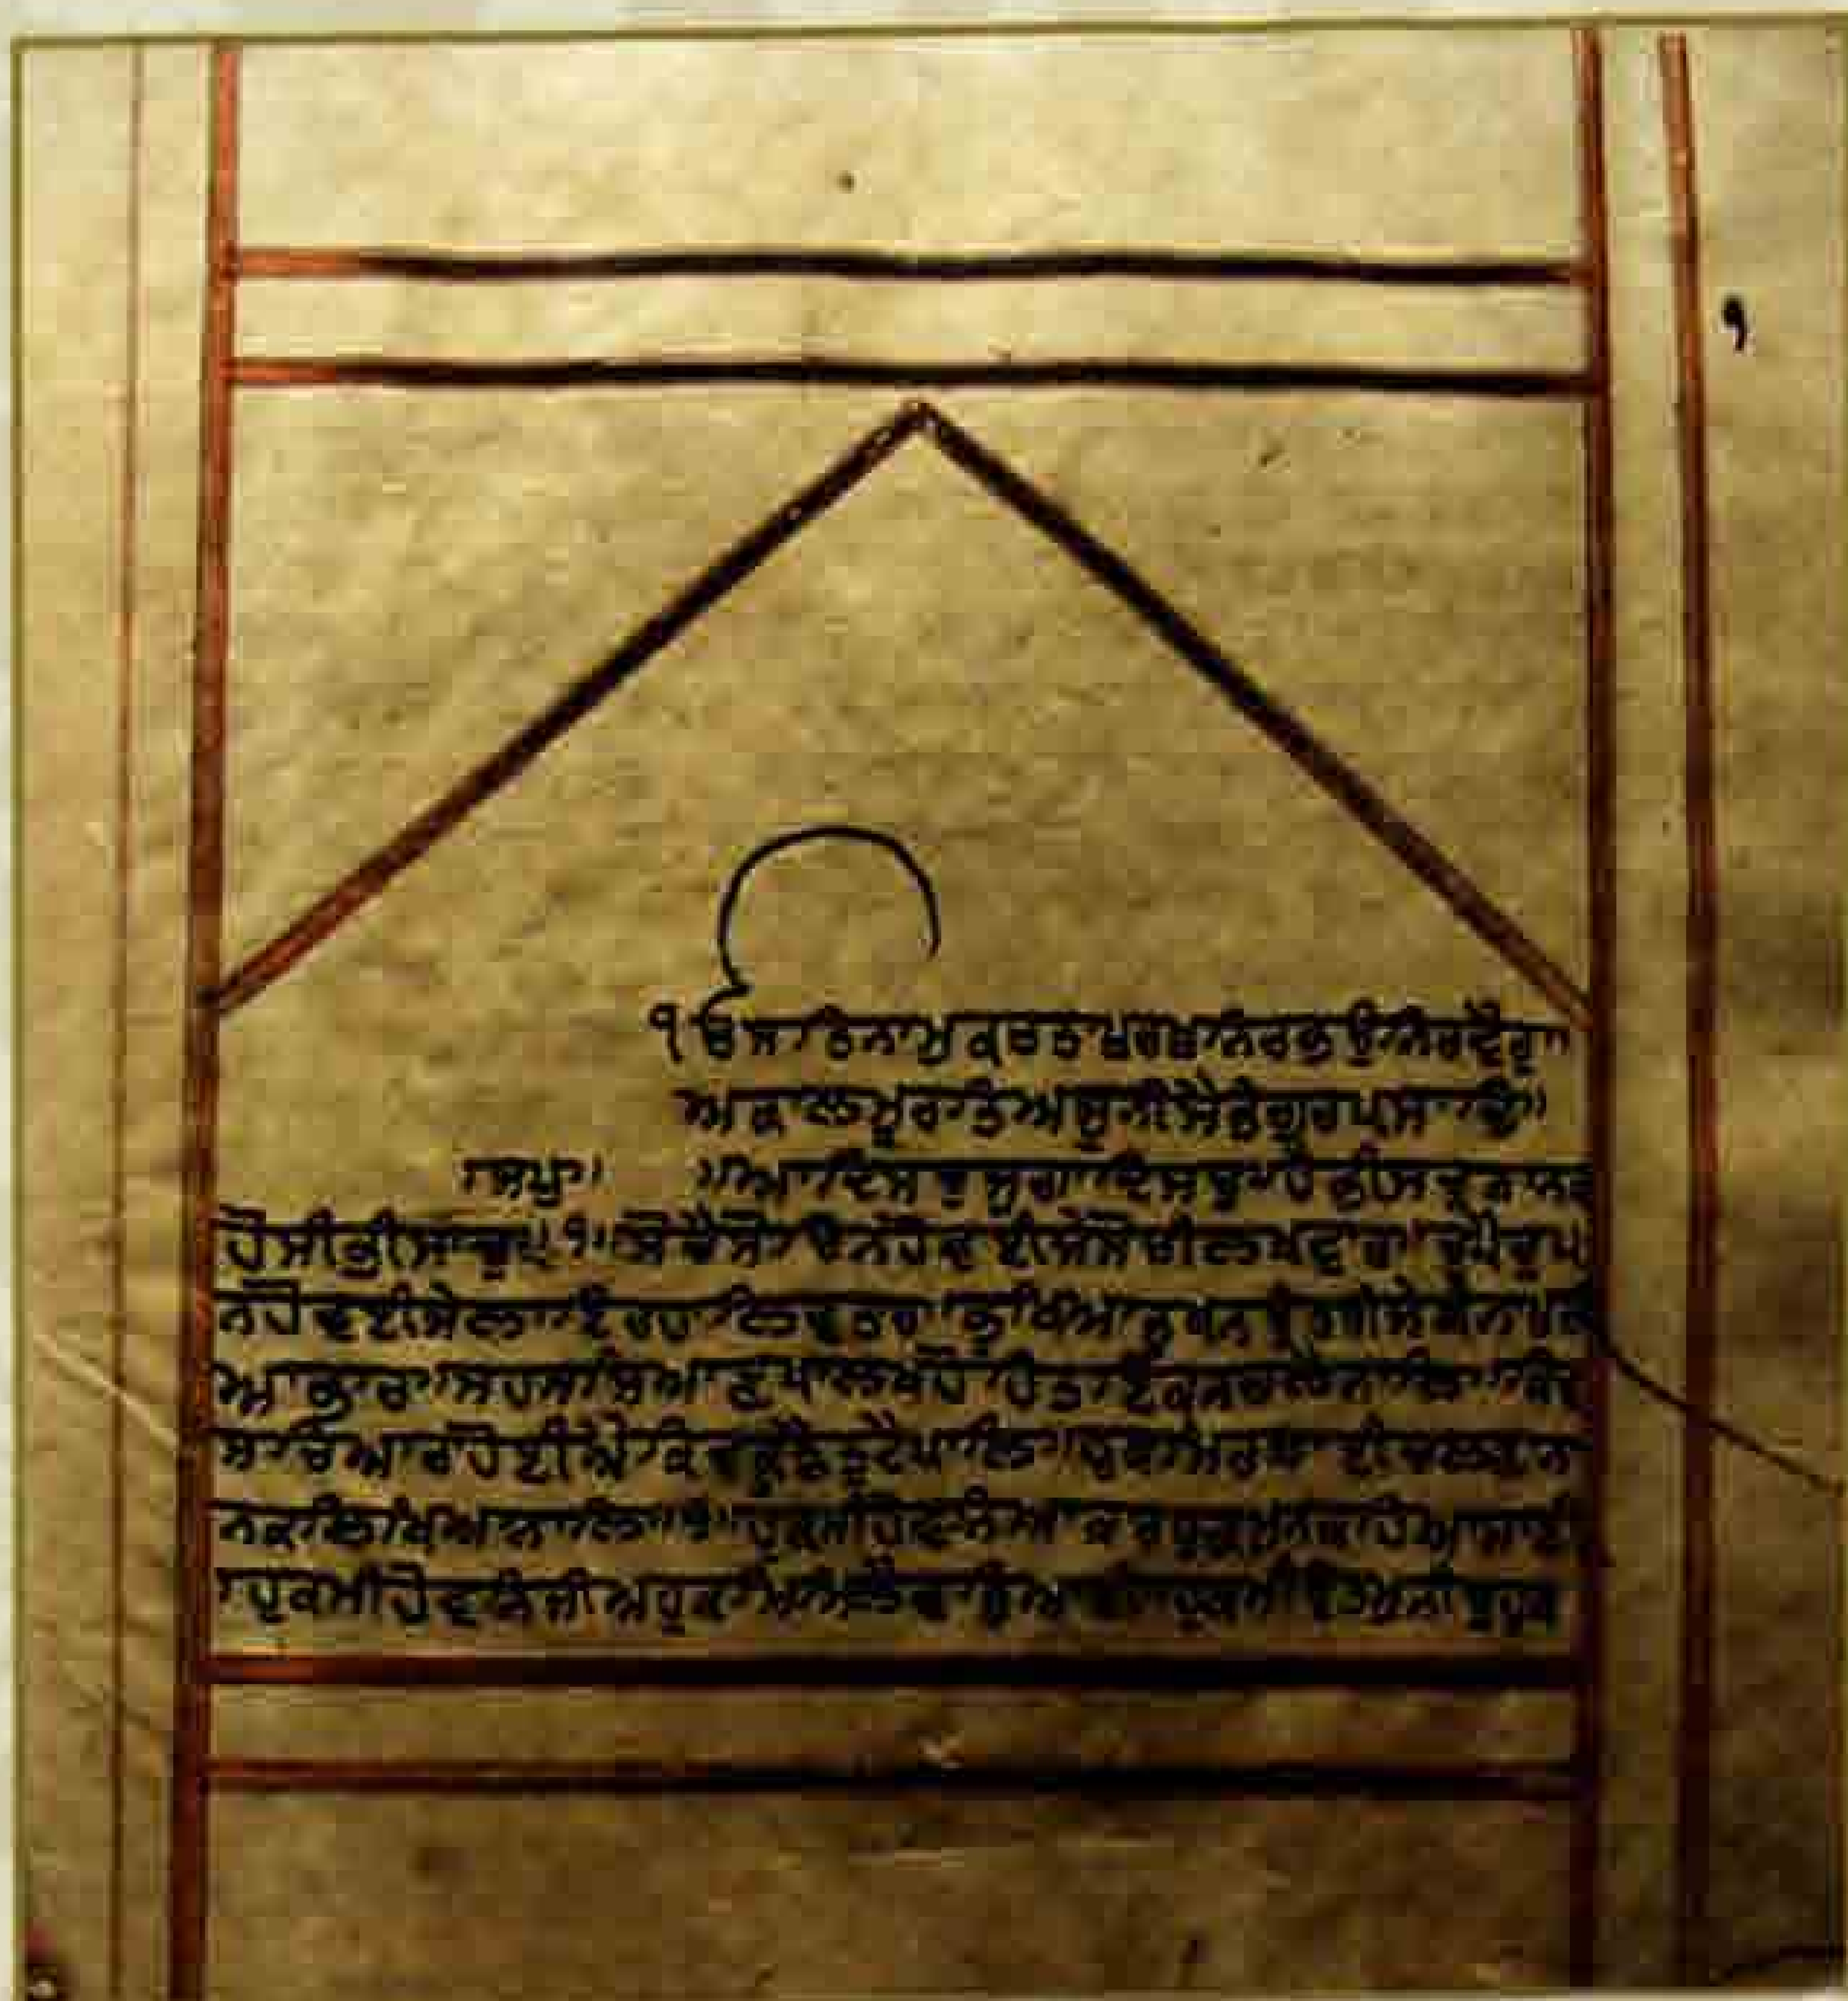 ੧
੧ਓ ਸਤਿਨਾਮੁਕਰਤਾਪੁਰਖੁਨਿਰਭਉਨਿਰਵੈਰੁ
ਅਕਾਲਮੂਰਤਿਅਜੂਨੀਸੈਭੰਗੁਰਪ੍ਰਸਾਦਿ॥
॥ਜਪੁ॥ ॥ਆਦਿਸਚੁਜੁਗਾਦਿਸਚੁ॥ਹੈਭੀਸਚੁਨਾਨਕ
ਹੋਸੀਭੀਸਚੁ॥੧॥ਸੋਚੈਸੋਚਿਨਹੋਵਈਜੇਸੋਚੀਲਖਵਾਰ॥ਚੁਪੈਚੁਪਿ
ਨਹੋਵਈਜੇਲਾਇਰਹਾਲਿਵਤਾਰ॥ਭੁਖਿਆਭੁਖਨਉਤਰੀਜੇਬੰਨਾਪੁਰੀ
ਆਭਾਰ॥ਸਹਸਸਿਆਣਪਾਲਖਹੋਹਿਤਇਕਨਚਲੈਨਾਲਿ॥ਕਿਵ
ਸਚਿਆਰਾਹੋਈਐਕਿਵਕੂੜੈਤੁਟੈਪਾਲਿ॥ਹੁਕਮਿਰਜਾਈਚਲਣਾਨਾ
ਨਕਲਿਖਿਆਨਾਲਿ॥੧॥ਹੁਕਮੀਹੋਵਨਿਆਕਾਰਹੁਕਮੁਨਕਹਿਆਜਾਈ
॥ਹੁਕਮੀਹੋਵਨਿਜੀਅਹੁਕਮਿਮਿਲੈਵਡਿਆਈ॥ਹੁਕਮੀਉਤਮੁਨੀਚੁਹੁਕ